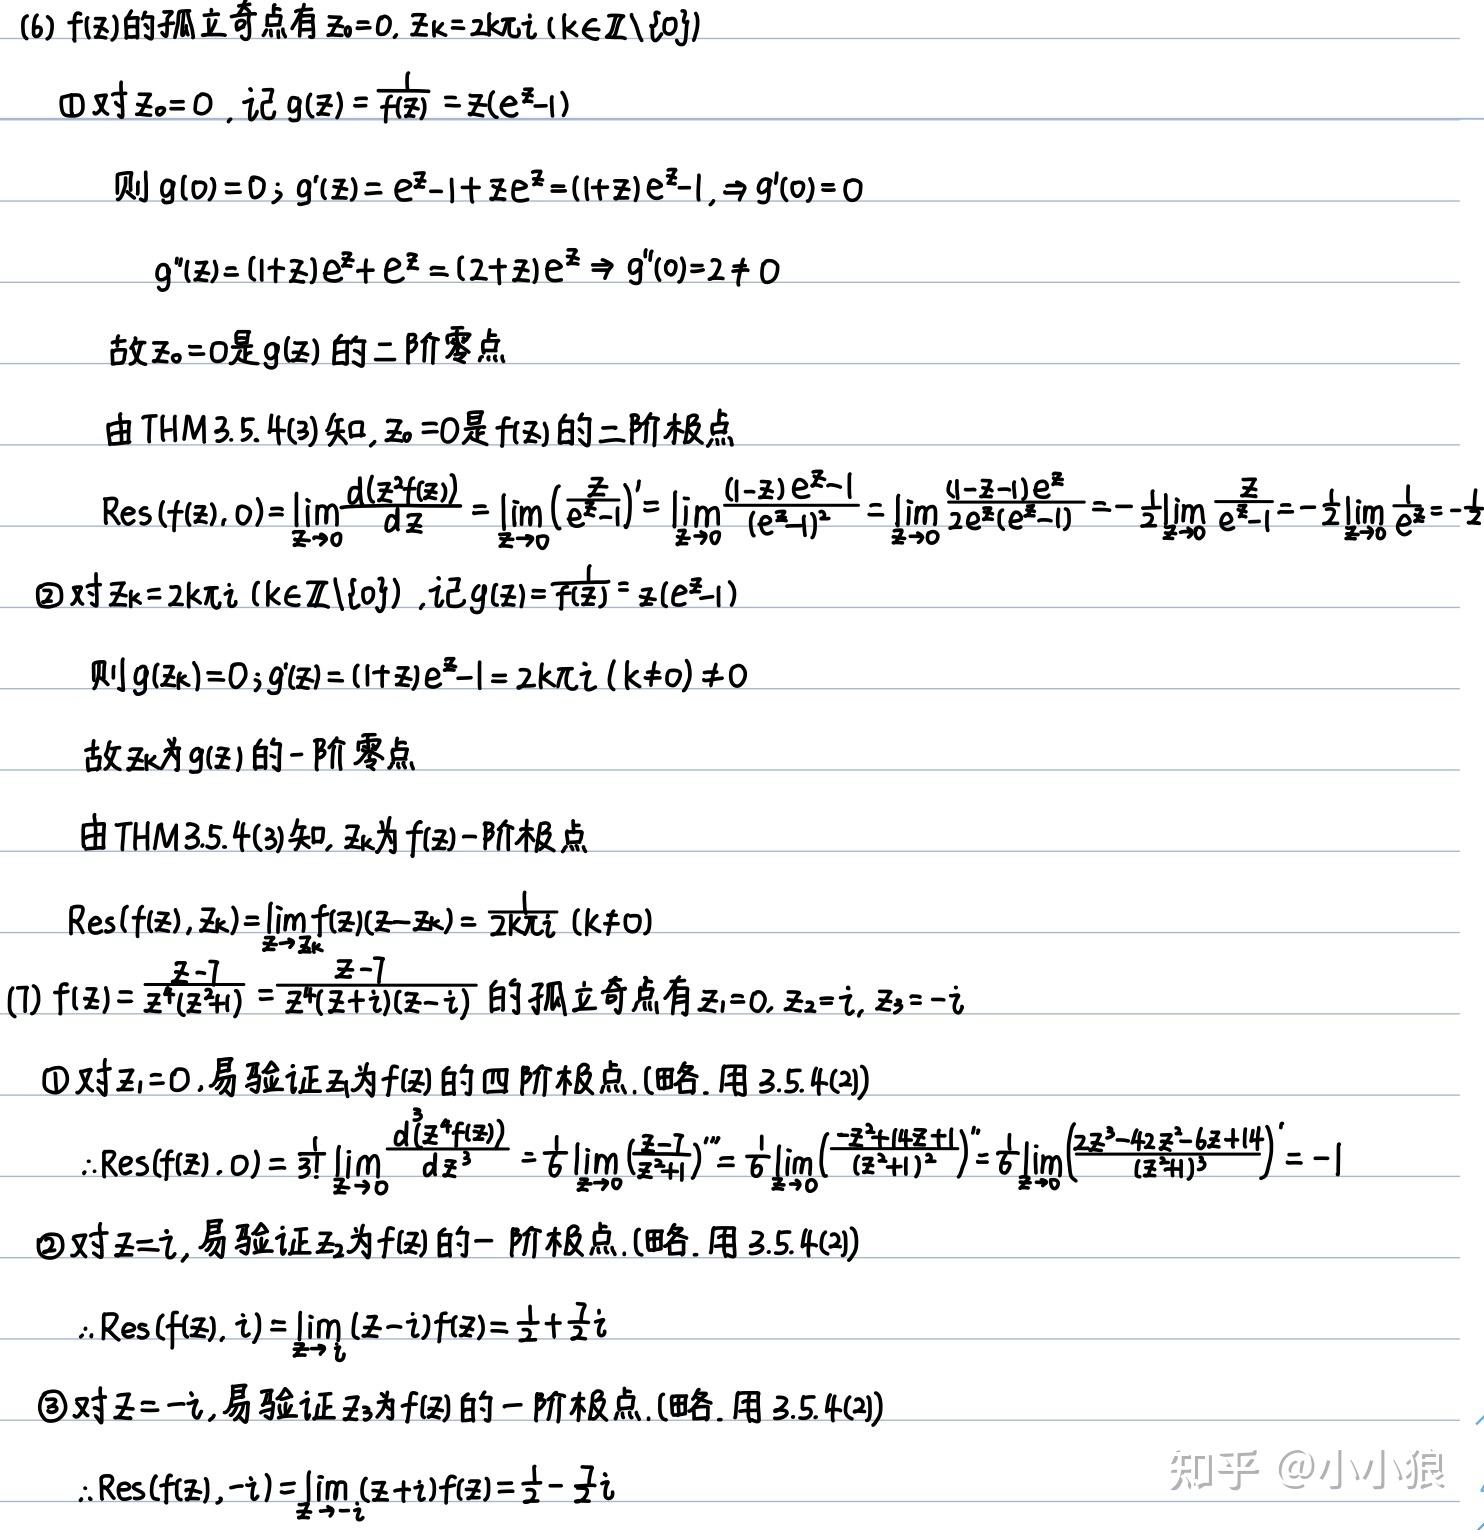 (6) f(z)的孤立奇点有 z₀=0, zₖ=2kπi (k∈ℤ\{0})
① 对 z₀=0, 记 g(z) = 1/f(z) = z(e^z-1)
则 g(0)=0; g'(z) = e^z-1+ze^z=(1+z)e^z-1, ⇒ g'(0)=0
g''(z)=(1+z)e^z+e^z=(2+z)e^z ⇒ g''(0)=2≠0
故 z₀=0是g(z)的二阶零点
由 THM 3.5.4(3)知, z₀=0是f(z)的二阶极点
Res(f(z),0)=lim_{z→0} d(z²f(z))/dz = lim_{z→0} (z/(e^z-1))' = lim_{z→0} ((1-z)e^z-1)/(e^z-1)² = lim_{z→0} ((1-z-1)e^z)/(2e^z(e^z-1)) = -1/2 lim_{z→0} z/(e^z-1) = -1/2 lim_{z→0} 1/e^z = -1/2
② 对 zₖ=2kπi (k∈ℤ\{0}), 记 g(z)=1/f(z)=z(e^z-1)
则 g(zₖ)=0; g'(z)=(1+z)e^z-1=2kπi (k≠0)≠0
故 zₖ为g(z)的一阶零点
由 THM 3.5.4(3)知, zₖ为f(z)一阶极点
Res(f(z),zₖ)=lim_{z→zₖ} f(z)(z-zₖ)=1/(2kπi) (k≠0)
(7) f(z)=(z-7)/(z⁴(z²+1)) = (z-7)/(z⁴(z+i)(z-i)) 的孤立奇点有 z₁=0, z₂=i, z₃=-i
① 对 z₁=0, 易验证z₁为f(z)的四阶极点.(略. 用 3.5.4(2))
∴Res(f(z),0)= 1/3! lim_{z→0} d³(z⁴f(z))/dz³ = 1/6 lim_{z→0} ((z-7)/(z²+1))''' = 1/6 lim_{z→0} ((-z²+14z+1)/(z²+1)²)'' = 1/6 lim_{z→0} ((2z³-42z²-6z+14)/(z²+1)³)' = -1
② 对 z=i, 易验证z₂为f(z)的一阶极点.(略. 用 3.5.4(2))
∴Res(f(z), i)=lim_{z→i} (z-i)f(z)=1/2+7/2 i
③ 对 z=-i, 易验证z₃为f(z)的一阶极点.(略. 用 3.5.4(2))
∴Res(f(z),-i)=lim_{z→-i} (z+i)f(z)=1/2-7/2 i
知乎 @小小狼